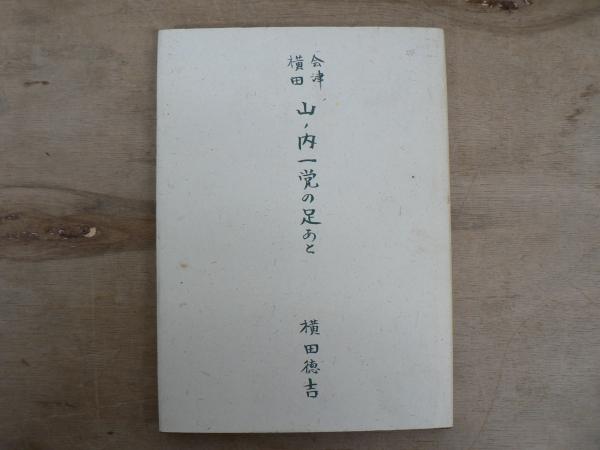 会津
横田
山ノ内一党の足あと
横田徳吉